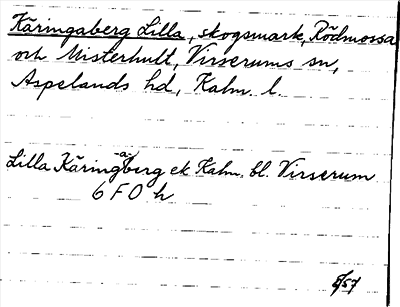 Käringaberg Lilla, skogsmark, Rödmossa
och Misterhult, Virserums sn,
Aspelands hd, Kalm. l.
Lilla Käringaberg ek Kalm. bl. Virserum
6 F 0 h
5/57